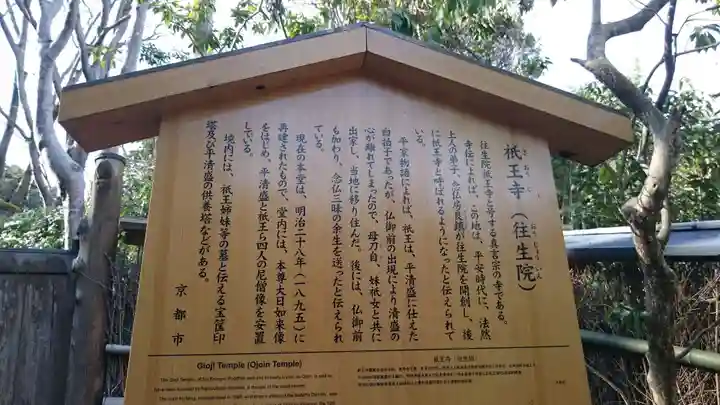 祇王寺（往生院）
ぎおうじ
おうじょういん
往生院祇王寺と号する真言宗の寺である。
寺伝によれば、この地は、平安時代に、法然
上人の弟子、念仏房良鎮が往生院を開創し、後
に祇王寺と呼ばれるようになったと伝えられて
いる。
平家物語によれば、祇王は、平清盛に仕えた
白拍子であったが、仏御前の出現により清盛の
心が離れてしまったので、母刀自、妹祇女と共に
出家し、当地に移り住んだ。後には、仏御前
も加わり、念仏三昧の余生を送ったと伝えられ
ている。
現在の本堂は、明治二十八年（一八九五）に
再建されたもので、堂内には、本尊大日如来像
をはじめ、平清盛と祇王ら四人の尼僧像を安置
している。
境内には、祇王姉妹等の墓と伝える宝筐印
塔及び平清盛の供養塔などがある。
京都市
Gioji Temple (Ojoin Temple)
祇王寺（往生院）